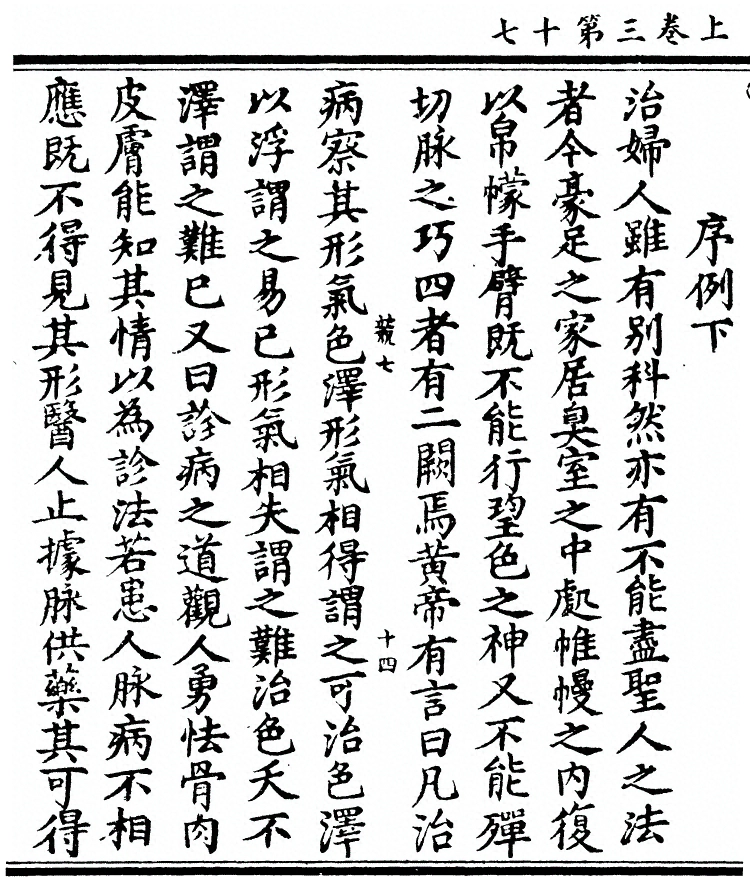 七十第三卷上
序例下
治婦人雖有別科然亦有不能盡聖人之法
者今豪足之家居奧室之中處帷幔之內復
以帛幪手臂既不能行望色之神又不能殫
切脉之巧四者有二闕焉黃帝有言曰凡治
競七 十四
病察其形氣色澤形氣相得謂之可治色澤
以浮謂之易已形氣相失謂之難治色夭不
澤謂之難已又曰診病之道觀人勇怯骨肉
皮膚能知其情以為診法若患人脉病不相
應既不得見其形醫人止據脉供藥其可得